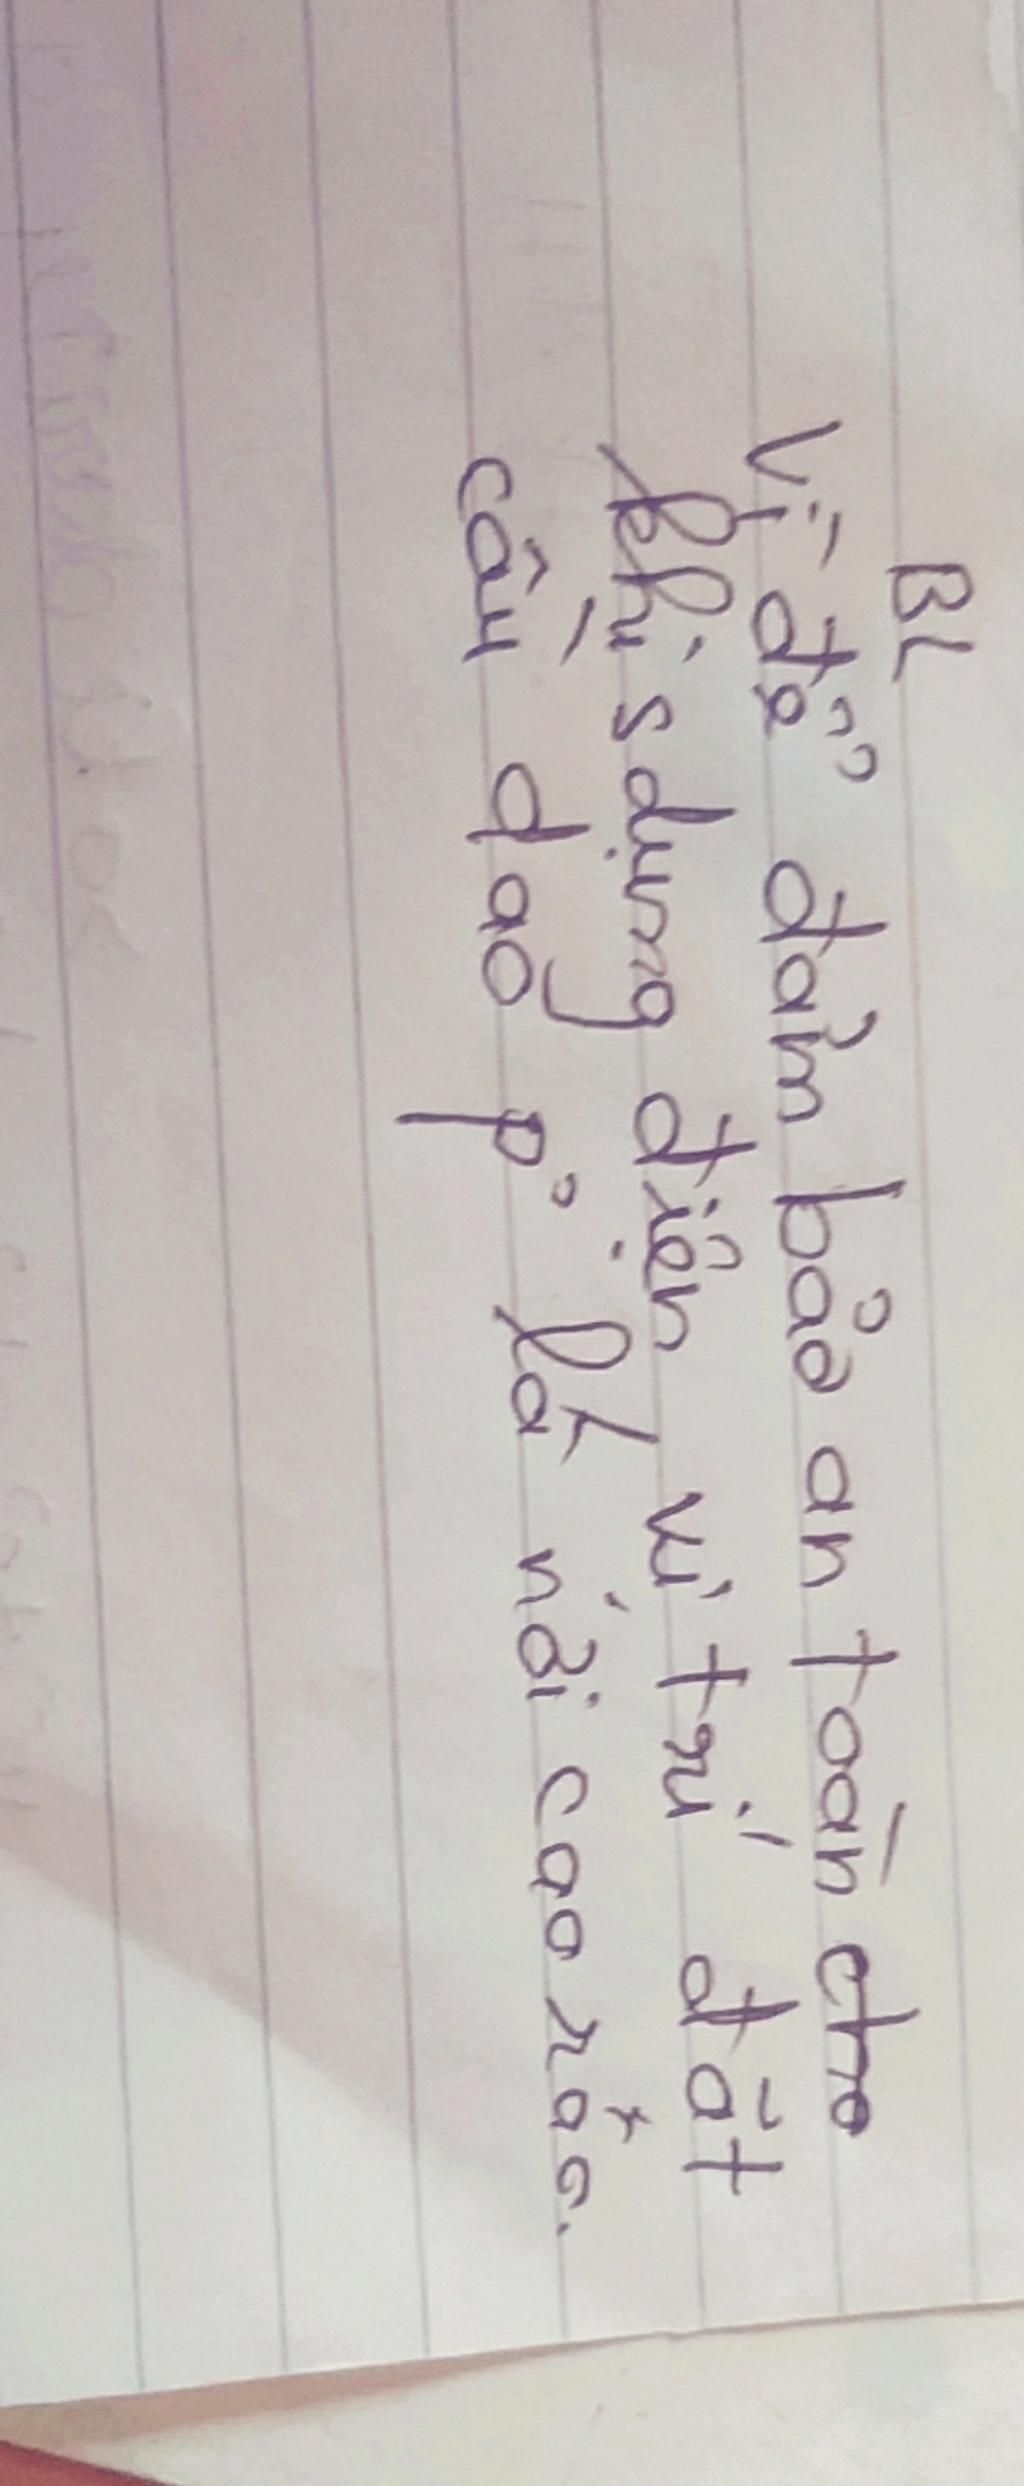 BL
Vì để đảm bảo an toàn cho
khi sdụng điện vị trí đặt
cầu dao pỉ là nơi cao ráo.